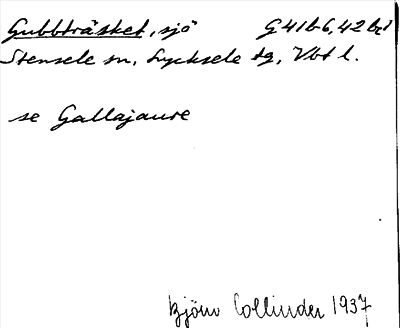 Gubbträsket, sjö G41b6, 42b1
Stensele sn, Lycksele tg, Vbt l.
se Gallajaure
Björn Collinder 1937